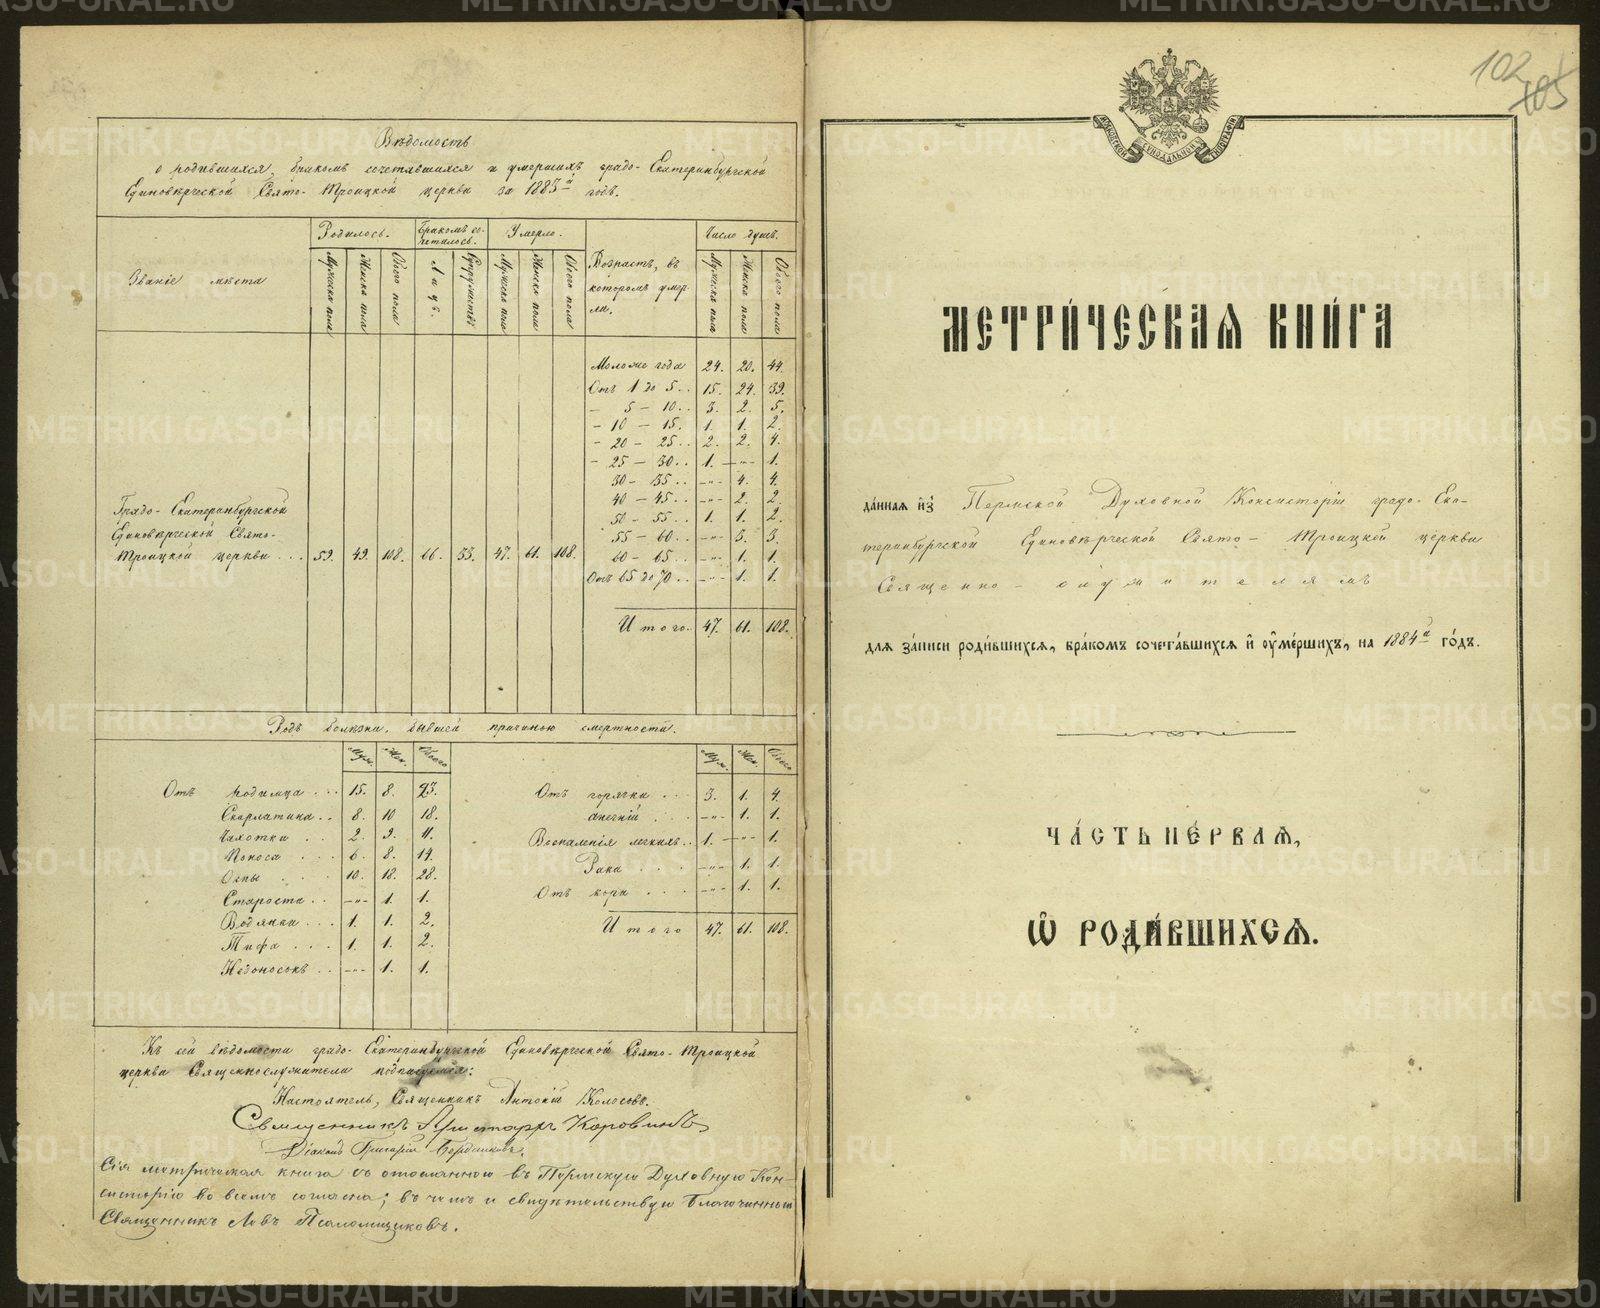 Вѣдомость
о родившихся, бракомъ сочетавшихся и умершихъ градо-Екатеринбургской
Единовѣрческой Свято-Троицкой церкви за 1883й годъ.
Званіе мѣста
Родилось.
Бракомъ сочеталось.
Умерло.
Возрастъ, въ которомъ умерли.
Число душъ.
Мужеска пола
Женска пола
Обоего пола
Лицъ.
Супружествъ
Мужеска пола
Женска пола
Обоего пола
Мужеска пола
Женска пола
Обоего пола
Моложе года 24. 20. 44.
Отъ 1 до 5.. 15. 24. 39.
– 5 – 10.. 3. 2. 5.
– 10 – 15. 1. 1. 2.
– 20 – 25.. 2. 2. 4.
– 25 – 30.. 1. –„– 1.
30 – 35.. –„– 4. 4.
40 – 45.. –„– 2. 2.
50 – 55.. 1. 1. 2.
55 – 60.. –„– 3. 3.
60 – 65.. –„– 1. 1.
Отъ 65 до 70.. –„– 1. 1.
Итого. 47. 61. 108.
Градо-Екатеринбургской
Единовѣрческой Свято-
Троицкой церкви ... 59. 49. 108. 66. 33. 47. 61. 108.
Родъ болѣзни, бывшей причиною смертности.
Муж. Жен. Обоего
Отъ родимца ... 15. 8. 23.
Скарлатина.. 8. 10 18.
Чахотки .. 2. 9. 11.
Поноса ... 6. 8. 14.
Оспы ... 10. 18. 28.
Старости.. –„– 1. 1.
Водянка... 1. 1. 2.
Тифа ... 1. 1. 2.
Недоносокъ.. –„– 1. 1.
Муж. Жен. Обоего
Отъ горячки ... 3. 1. 4.
. –„– 1. 1.
Воспаленія легкихъ.. 1. –„– 1.
Рака ... –„– 1. 1.
Отъ кори ... –„– 1. 1.
Итого 47. 61. 108.
Къ сей вѣдомости градо-Екатеринбургской Единовѣрческой Свято-Троицкой
церкви Священнослужители подписуемся:
Настоятель, Священникъ Антоній Колосовъ.
Священникъ Аристархъ Коровинъ
Діаконъ Григорій
Сія метрическая книга съ отосланною въ Пермскую Духовную Кон-
систорію во всемъ согласна; въ чемъ и свидѣтельствую Благочинный
Священникъ Левъ Псаломщиковъ.
102
105
МОСКОВСКОЙ СѴНОДАЛЬНОЙ ТИПОГРАФІИ
МЕТРИ́ЧЕСКАѦ КНИ́ГА
да́нная и҆з̾ Пермской Духовной Консисторіи градо-Ека-
теринбургской Единовѣрческой Свято-Троицкой церкви
Священно-служителямъ
для за́писи роди́вшихся, бра́комъ сочета́вшихся и҆ ᲂу҆ме́ршихъ, на 1884й го́дъ.
ЧА́СТЬ ПЕ́РВАѦ,
Ѡ҆ РОДИ́ВШИХСѦ.
METRIKI.GASO-URAL.RU